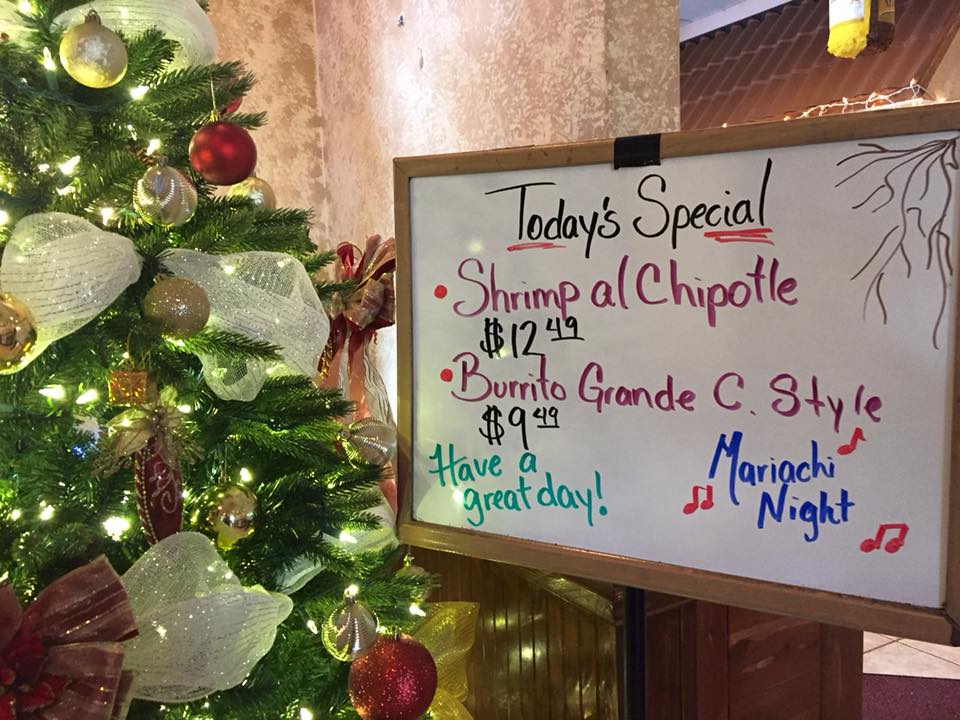 Today's Special
• Shrimp al Chipotle
$12 49
• Burrito Grande C. Style
$9 49
Have a
great day!
Mariachi
Night